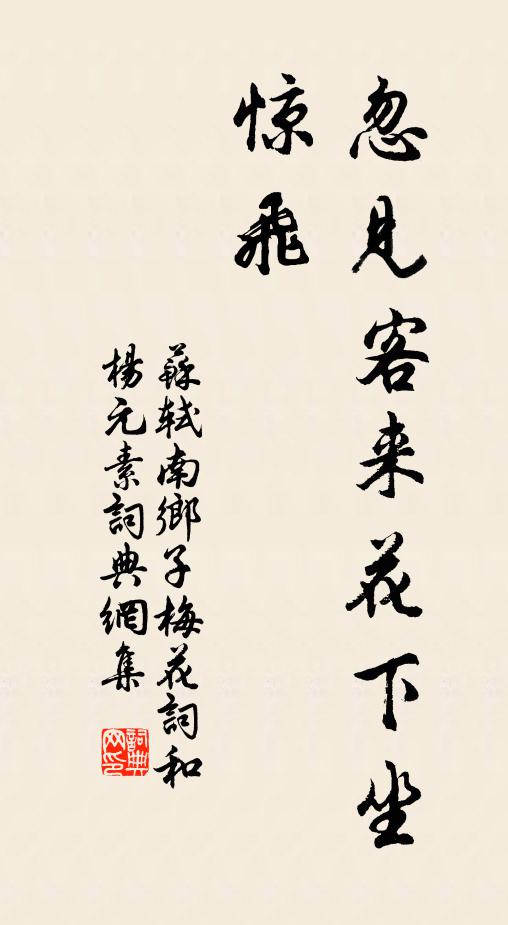 忽見客来花下坐
惊飛
蘇軾南鄉子梅花詞和
楊元素詞典網集
詞典
网印